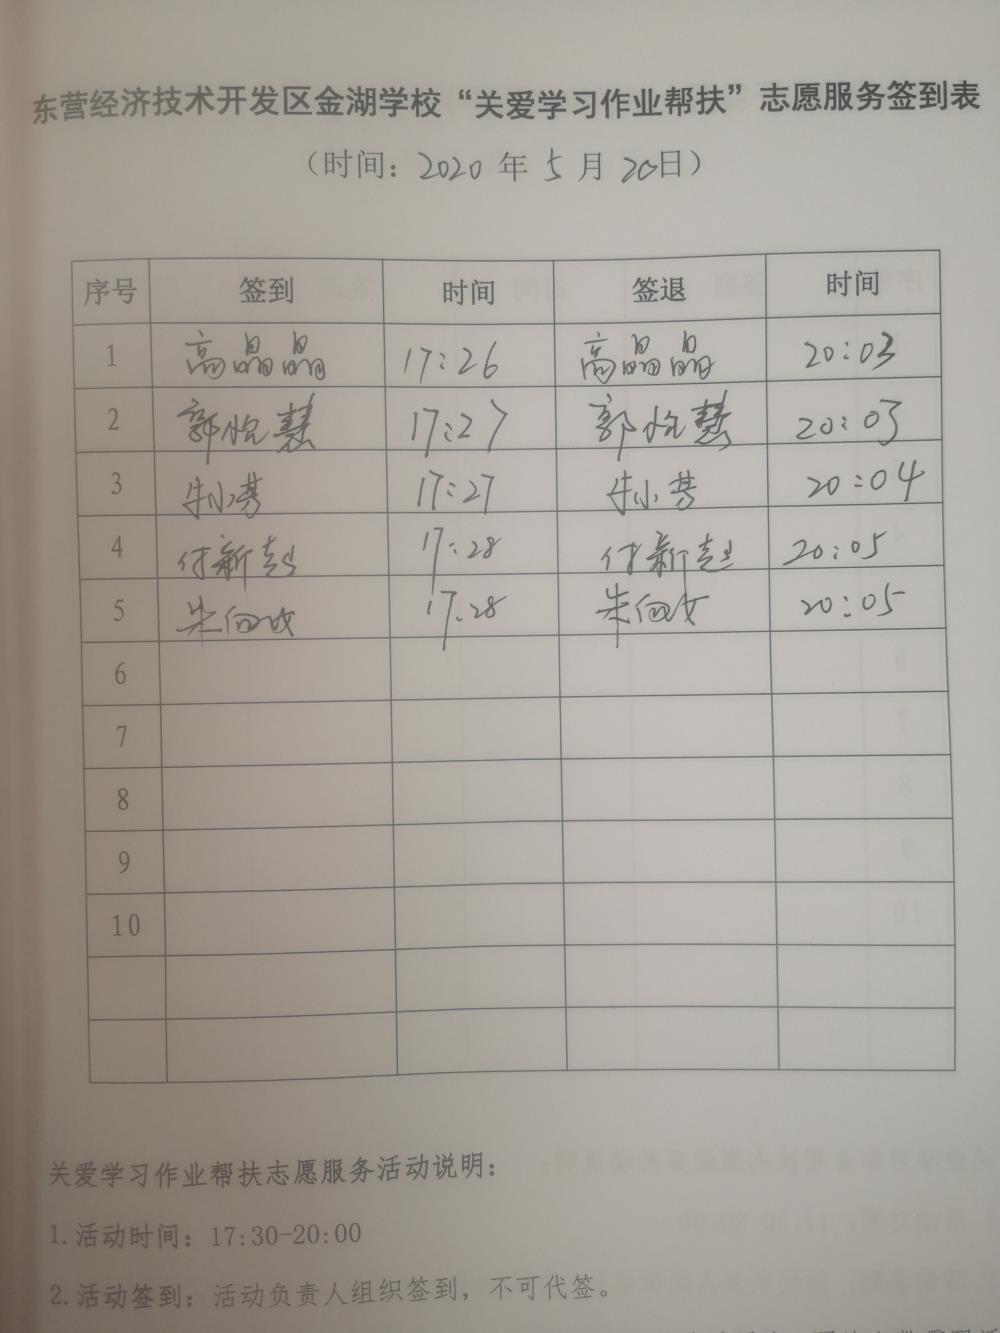 东营经济技术开发区金湖学校“关爱学习作业帮扶”志愿服务签到表
（时间：2020年5月20日）
序号 签到 时间 签退 时间
1 高晶晶 17:26 高晶晶 20:03
2 郭怡慧 17:27 郭怡慧 20:03
3 朱小芳 17:27 朱小芳 20:04
4 付新起 17:28 付新起 20:05
5 朱向 17:28 朱向 20:05
6
7
8
9
10
关爱学习作业帮扶志愿服务活动说明：
1.活动时间：17:30-20:00
2.活动签到：活动负责人组织签到，不可代签。